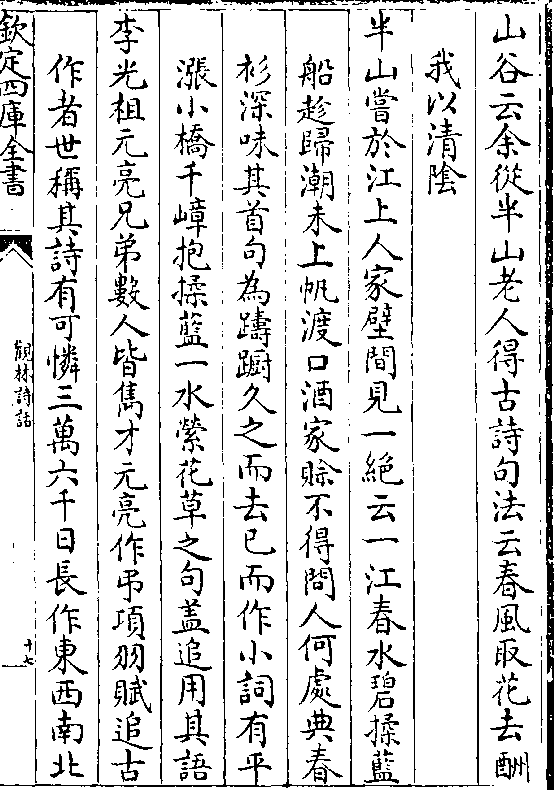 山谷云余從半山老人得古詩句法云春風取花去酬
我以清陰
半山嘗於江上人家壁間見一絶云一江春水碧揉藍
船趁歸潮未上帆渡口酒家賖不得問人何處典春
衫深味其首句為躊躇久之而去已而作小詞有平
漲小橋千嶂抱揉藍一水縈花草之句蓋追用其語
李光祖元亮兄弟數人皆雋才元亮作弔項羽賦追古
作者世稱其詩有可憐三萬六千日長作東西南北
欽定四庫全書
觀林詩話
十七